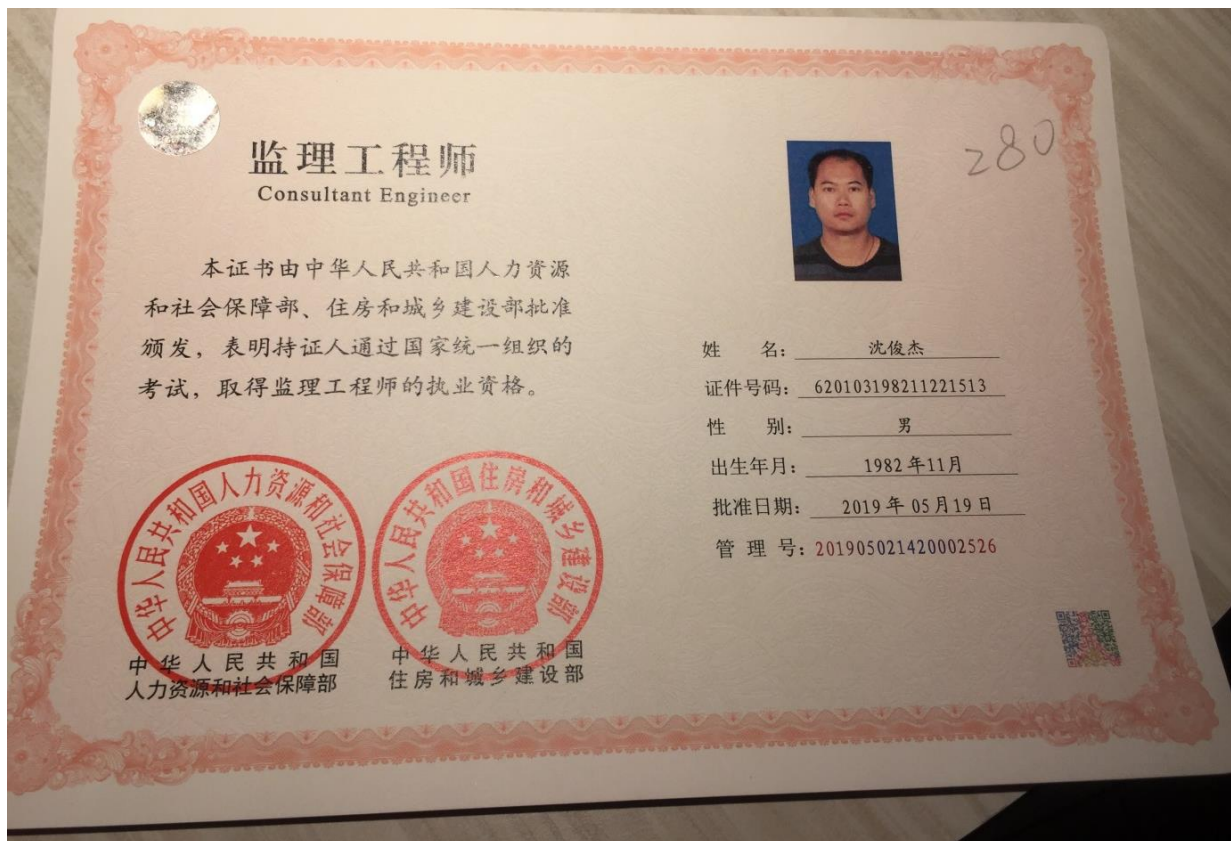 监理工程师
Consultant Engineer
本证书由中华人民共和国人力资源
和社会保障部、住房和城乡建设部批准
颁发，表明持证人通过国家统一组织的
考试，取得监理工程师的执业资格。
中华人民共和国人力资源和社会保障部
中华人民共和国住房和城乡建设部
中华人民共和国
人力资源和社会保障部
中华人民共和国
住房和城乡建设部
280
姓 名：沈俊杰
证件号码：620103198211221513
性 别：男
出生年月：1982年11月
批准日期：2019年05月19日
管 理 号：201905021420002526